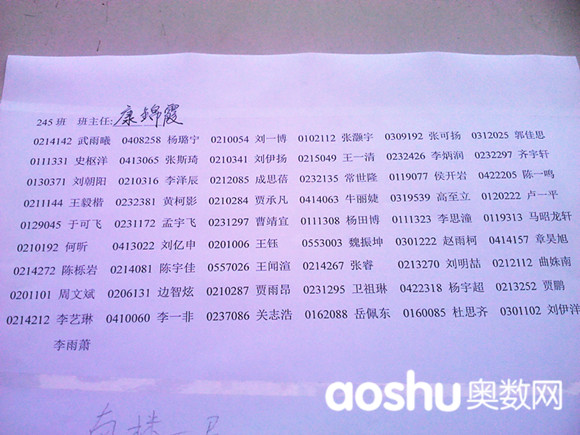 245 班 班主任: 康锦霞
0214142 武雨曦 0408258 杨璐宁 0210054 刘一博 0102112 张灏宇 0309192 张可扬 0312025 郭佳思
0111331 史枢洋 0413065 张斯琦 0210341 刘伊扬 0215049 王一清 0232426 李炳润 0232297 齐宇轩
0130371 刘朝阳 0210316 李泽辰 0212085 成思蓓 0232135 常世隆 0119077 侯开岩 0422205 陈一鸣
0211144 王毅楷 0232381 黄柯影 0210284 贾承凡 0414063 牛丽婕 0319539 高至立 0120222 卢一平
0129045 于可飞 0231172 孟宇飞 0231297 曹靖宜 0111308 杨田博 0111323 李思潼 0119313 马昭龙轩
0210192 何昕 0413022 刘亿申 0201006 王钰 0553003 魏振坤 0301222 赵雨柯 0414157 章昊旭
0214272 陈栎岩 0214081 陈宇佳 0557026 王闻渲 0214267 张睿 0213270 刘明喆 0212112 曲姝南
0201101 周文斌 0206131 边智炫 0210287 贾雨昂 0231295 卫祖琳 0422318 杨宇超 0213252 贾鹏
0214212 李艺琳 0410060 李一非 0237086 关志浩 0162088 岳佩东 0160085 杜思齐 0301102 刘伊洋
李雨萧
aoshu奥数网